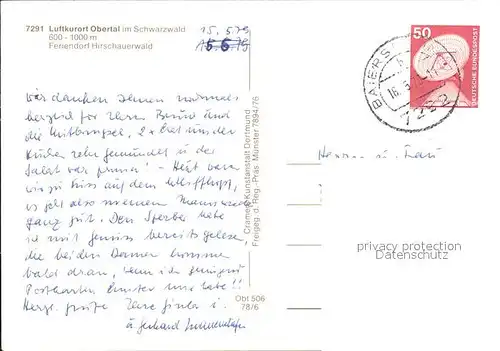 7291 Luftkurort Obertal im Schwarzwald
600 - 1000 m
Feriendorf Hirschauerwald
15.5.79
wir danken Ihnen nochmals
herzlich für Ihren Besuch und
die Mitbringsel,
Kuchen sehr gemundet u. der
Salat war prima! - Heut waren
wir zu Fuss auf dem
es geht also meinem Mann
ganz gut. Den Sperber habe
ich mit Genuss bereits gelesen,
die beiden Damen kommen
bald dran, wenn ich
Postkarten hinter mir habe!!
Herzl. Grüße Ihre
u. Gerhard
Cramers Kunstanstalt Dortmund
Freigeg. d. Reg.-Präs. Münster 7894/76
Obt 506
78/6
50
DEUTSCHE BUNDESPOST
BAIERS
7292
Herrn u. Frau
privacy protection
Datenschutz